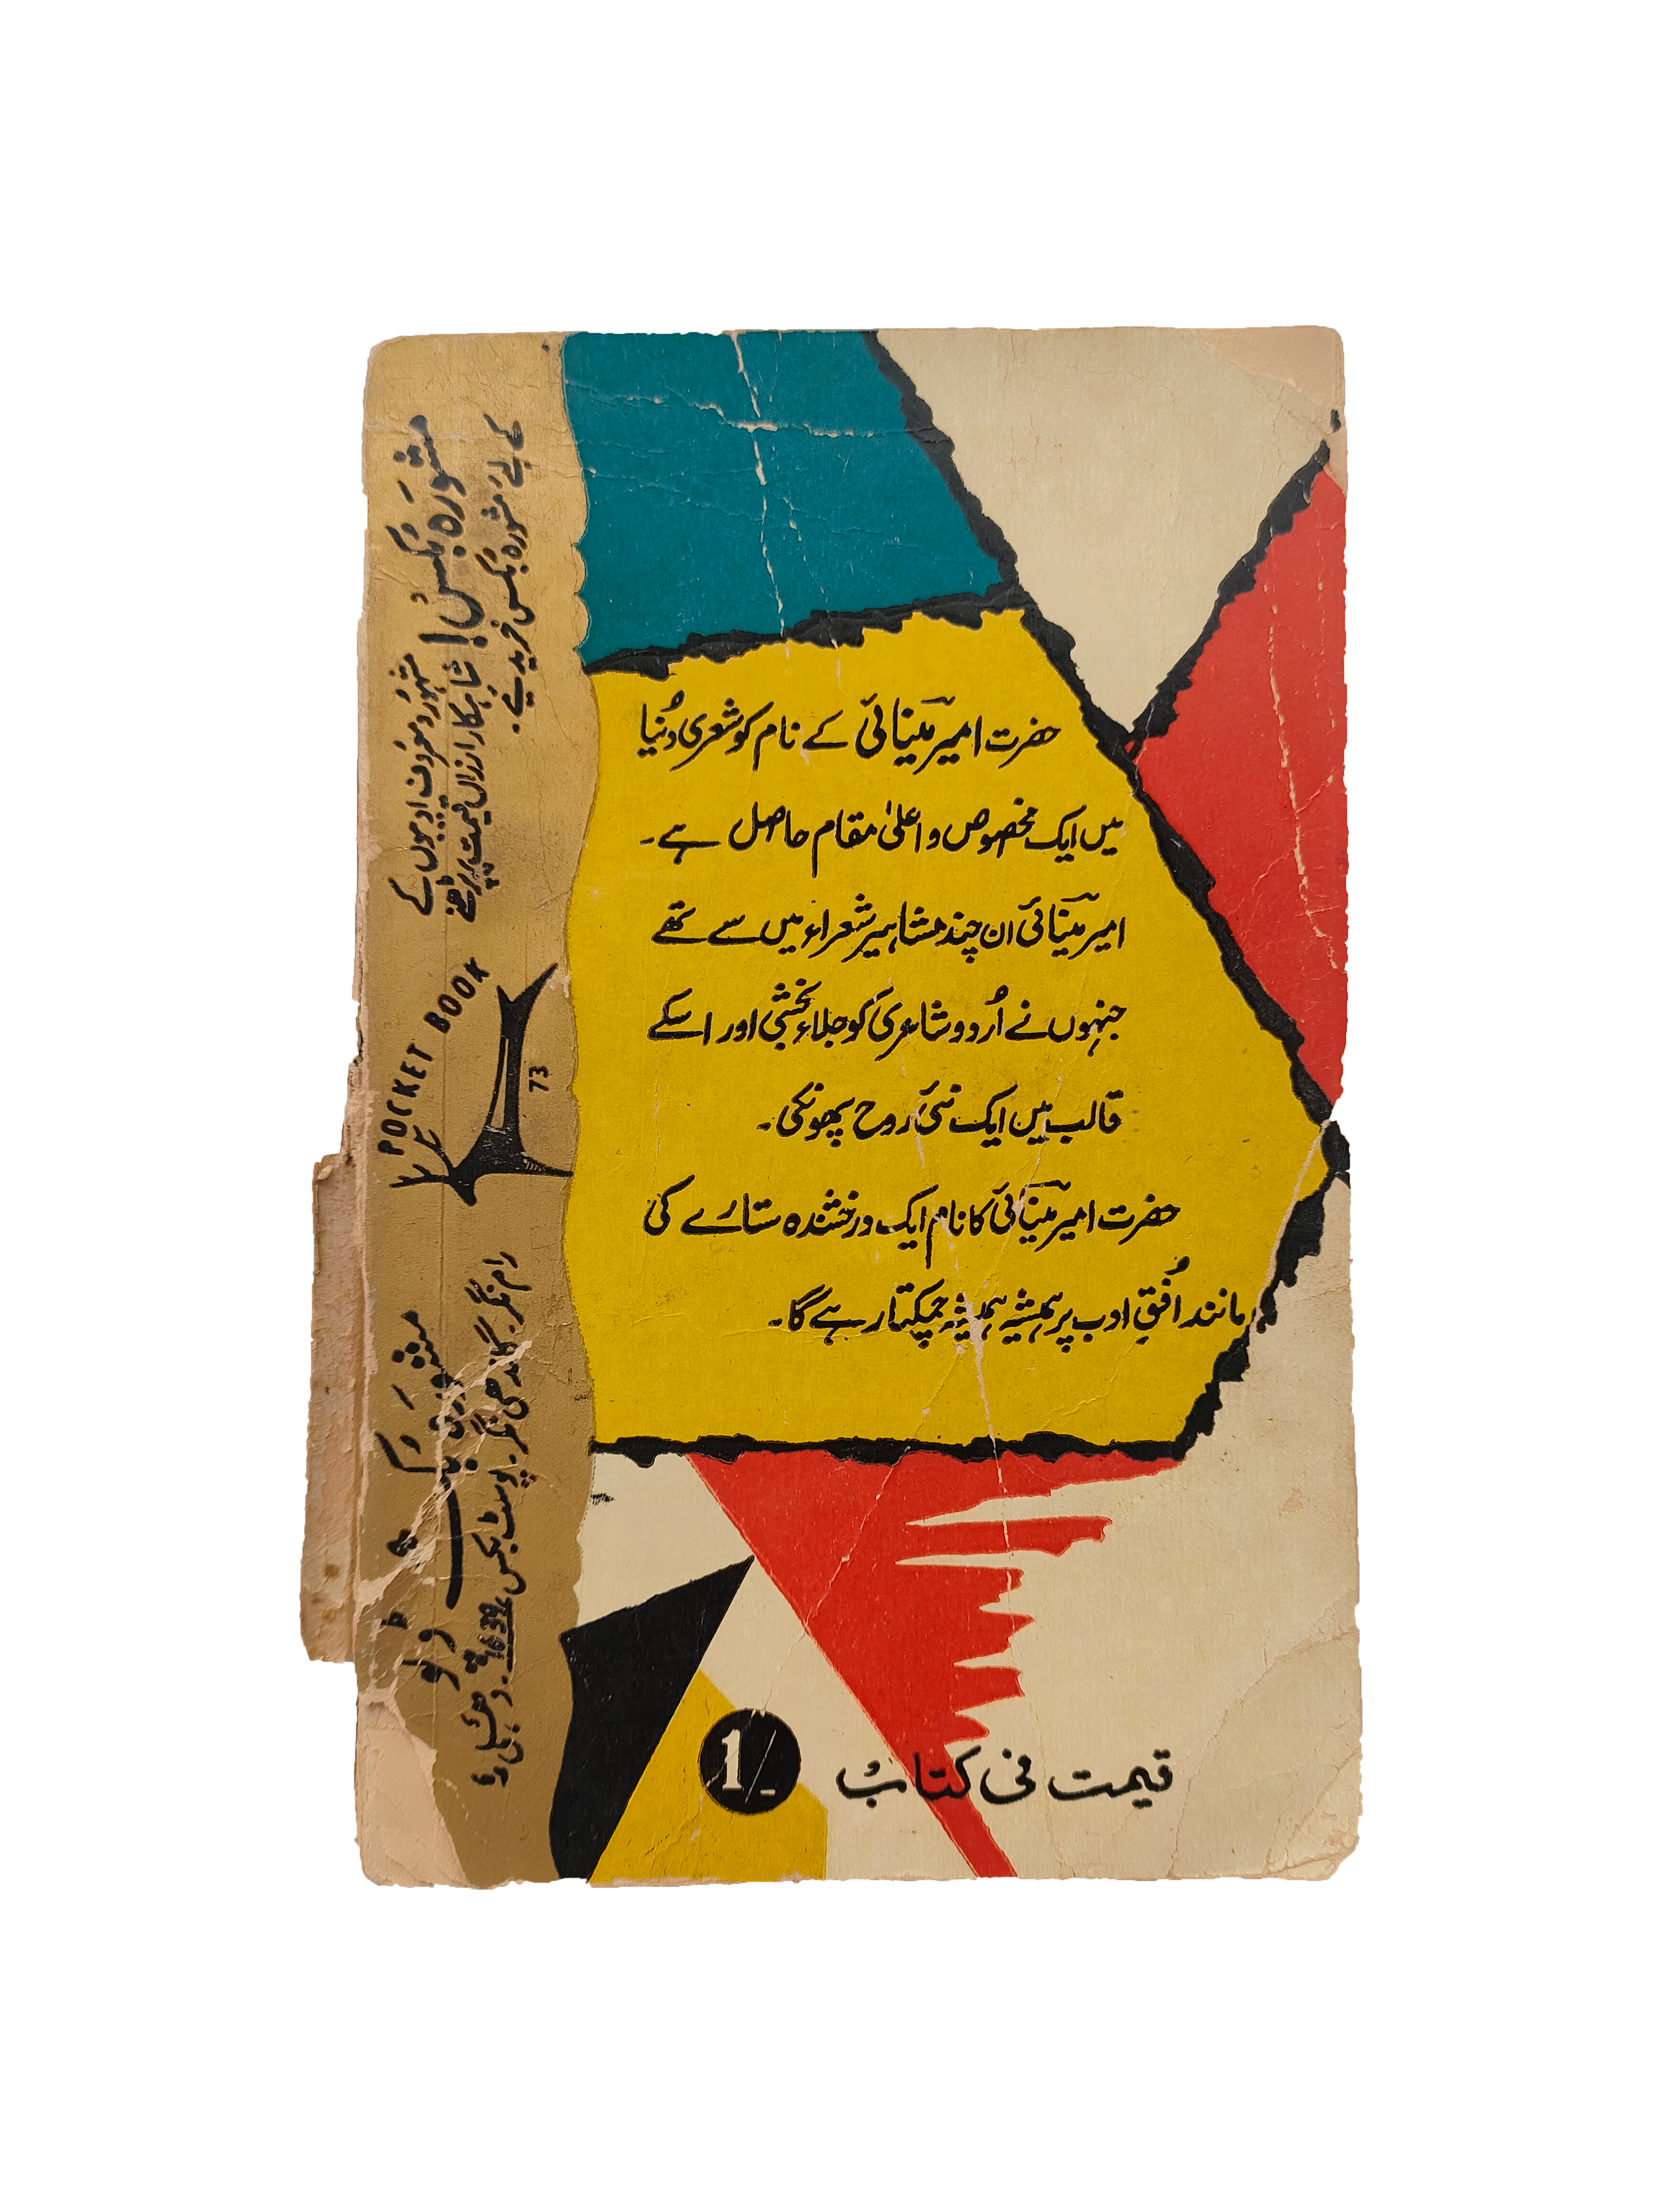 حضرت امیر مینائی کے نام کو شعری دُنیا
میں ایک مخصوص و اعلیٰ مقام حاصل ہے۔
امیر مینائی ان چند مشاہیر شعراء میں سے تھے
جنہوں نے اُردو شاعری کو جلاء بخشی اور اسکے
قالب میں ایک نئی روح پھونکی۔
حضرت امیر مینائی کا نام ایک درخشندہ ستارے کی
مانند اُفقِ ادب پر ہمیشہ ہمیشہ چمکتا رہے گا۔
قیمت فی کتاب 1/-
مشورہ بُکس!
مشہور و معروف ادیبوں کے
شاہکار ارزاں قیمت پر پڑھنے
کے لئے مشورہ بکس خریدیے۔
POCKET BOOK
73
مشورہ بُک ڈپو
رام نگر۔ گاندھی نگر۔ پوسٹ بکس 1639۔ دہلی